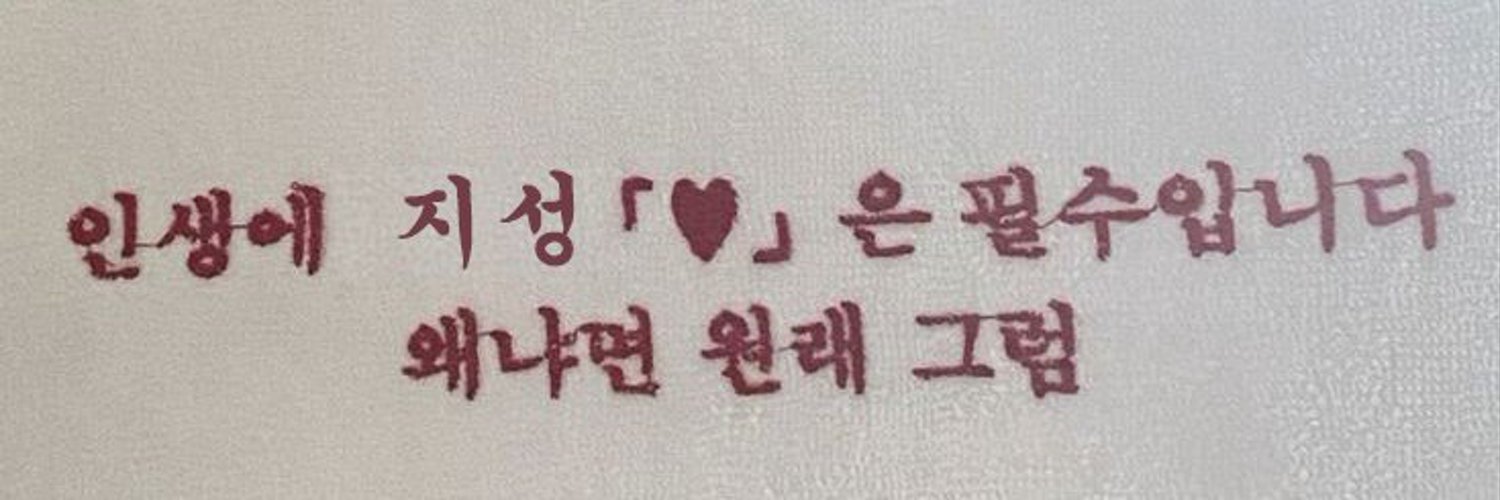 인생에 지성 「♥」 은 필수입니다
왜냐면 원래 그럼